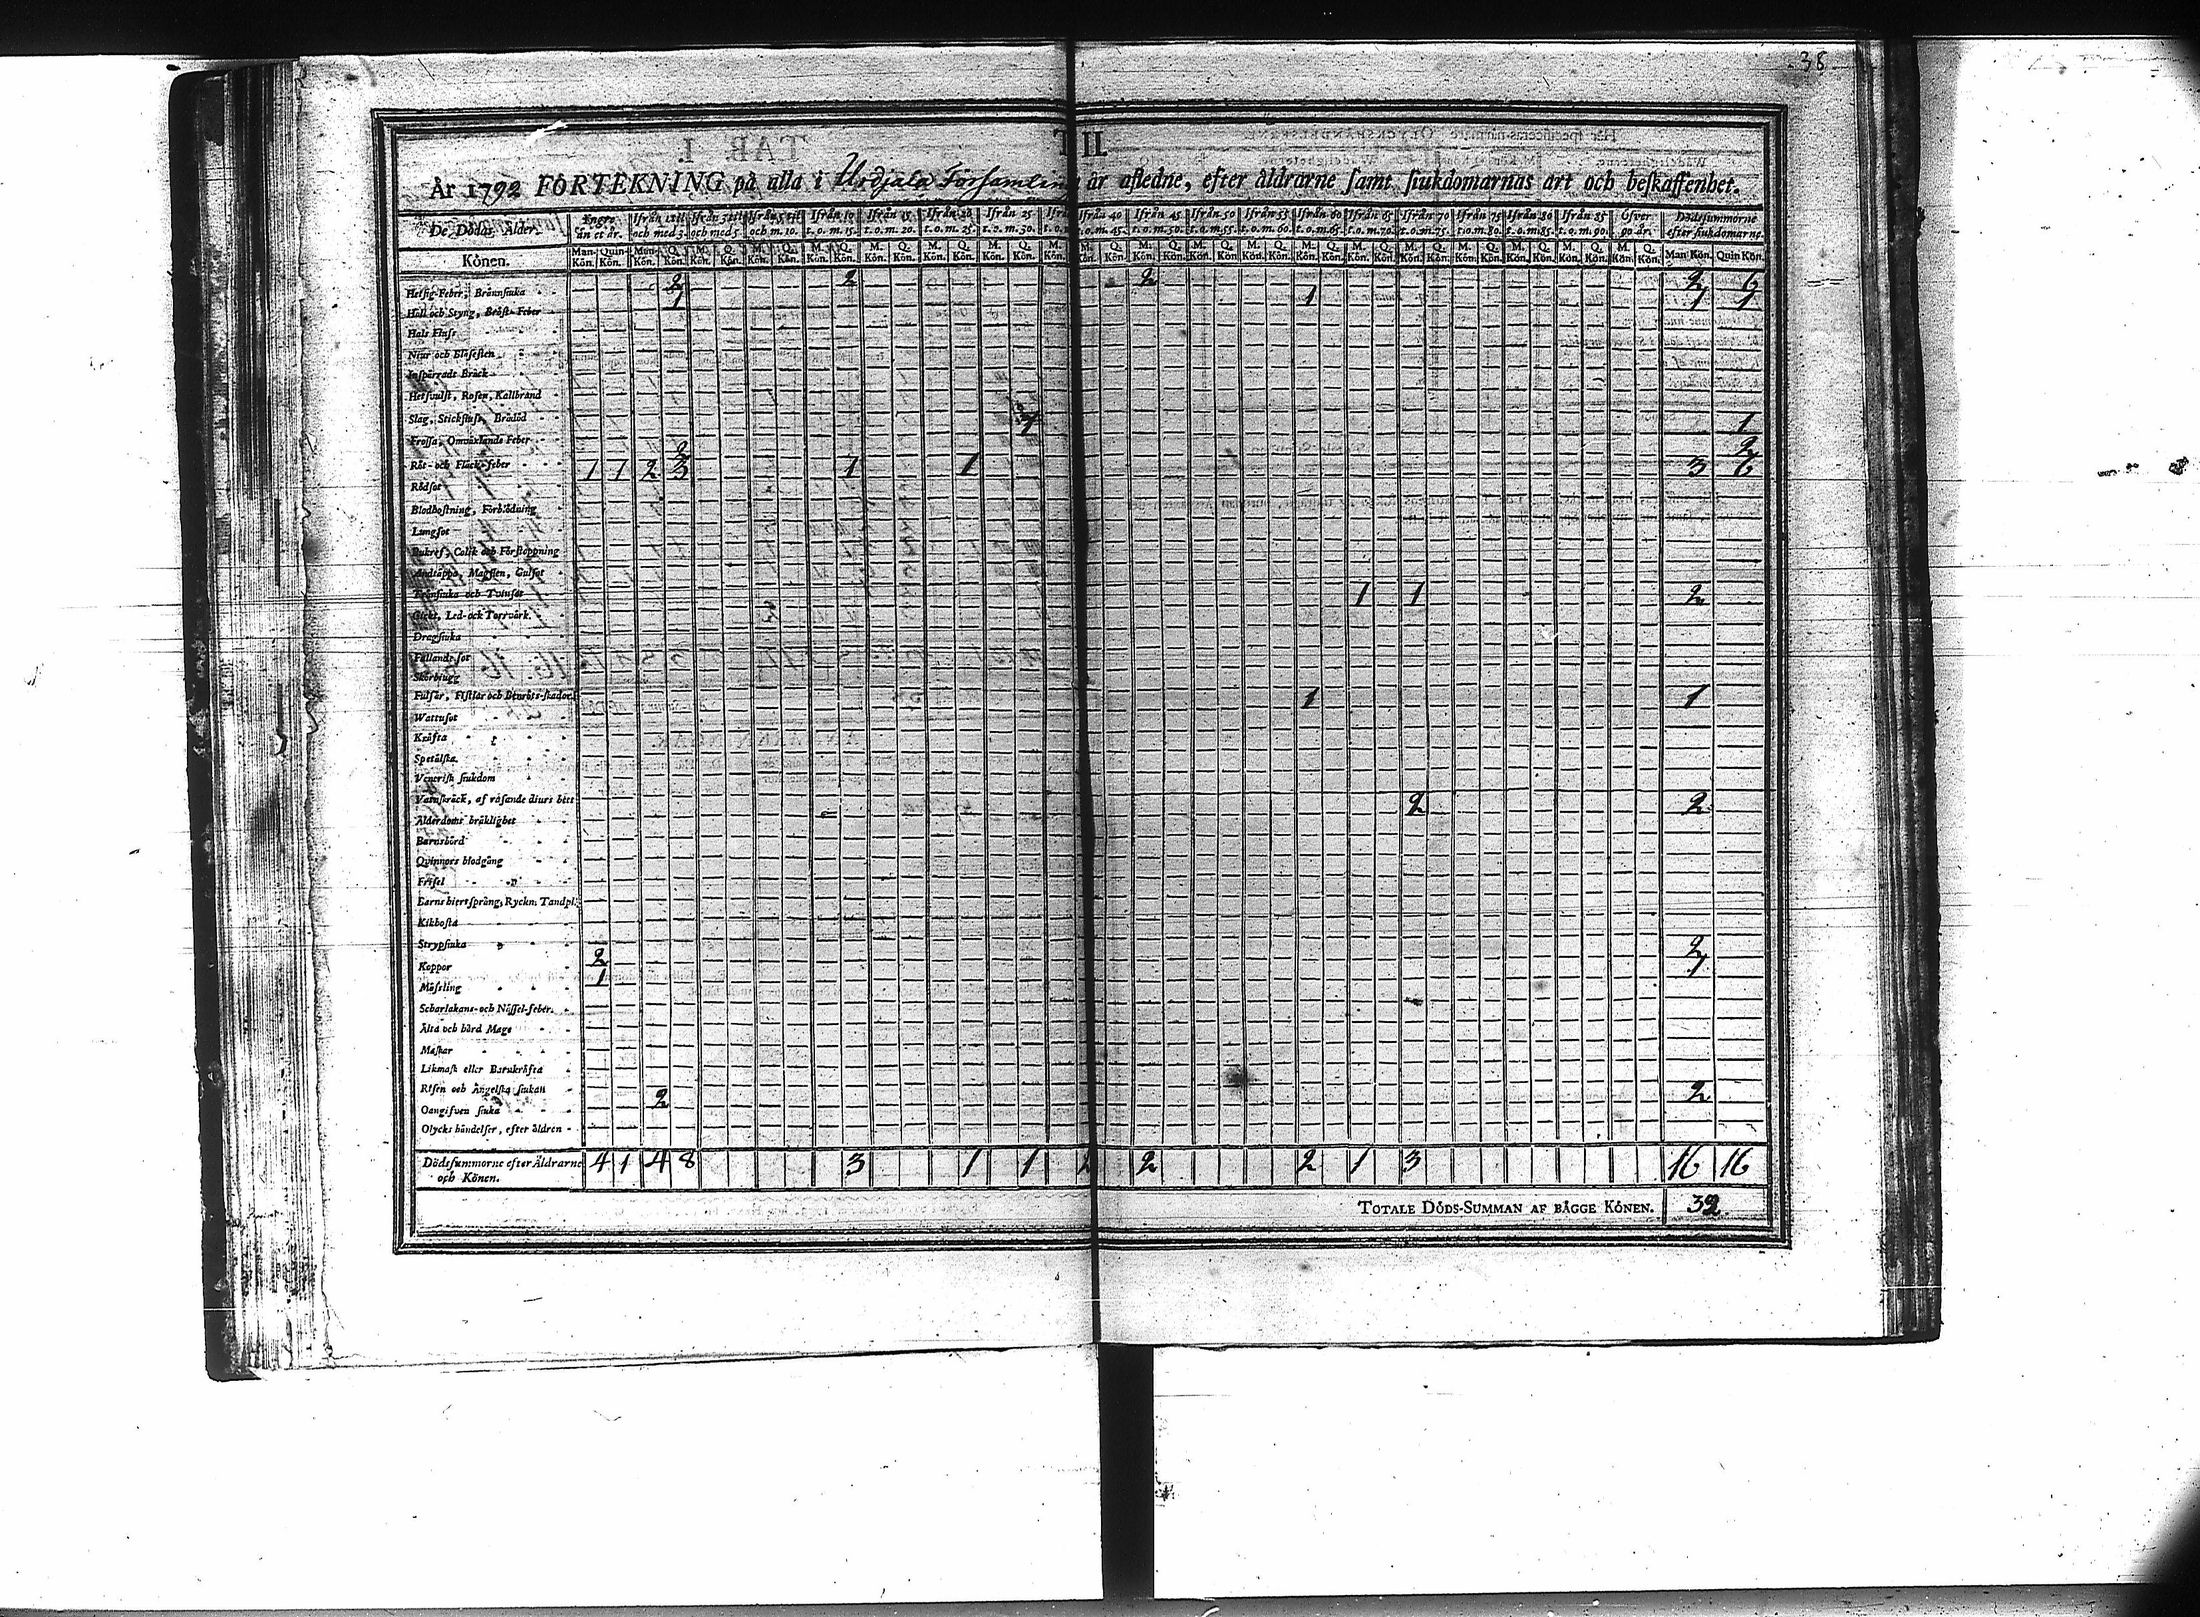 38
TAB. I.
T II.
År 1792 FÖRTEKNING på alla i Urdjala Församling är afledne, efter åldrarne samt siukdomarnas art och beskaffenhet.
De Dödas Ålder. Yngre än et år. Ifrån 1 til och med 3. Ifrån 3 til och med 5. Ifrån 5 til och m. 10. Ifrån 10 t. o. m. 15. Ifrån 15 t. o. m. 20. Ifrån 20 t. o. m. 25. Ifrån 25 t. o. m. 30. Ifrån 40 t. o. m. 45. Ifrån 45 t. o. m. 50. Ifrån 50 t. o. m. 55. Ifrån 55 t. o. m. 60. Ifrån 60 t. o. m. 65. Ifrån 65 t. o. m. 70. Ifrån 70 t. o. m. 75. Ifrån 75 t. o. m. 80. Ifrån 80 t. o. m. 85. Ifrån 85 t. o. m. 90. Öfver 90 år. Dödssummorne efter siukdomarne.
Könen. Man-Kön. Quin-Kön. Man-Kön. Q. Kön. M. Kön. Q. Kön. M. Kön. Q. Kön. M. Kön. Q. Kön. M. Kön. Q. Kön. M. Kön. Q. Kön. M. Kön. Q. Kön. M. Kön. Q. Kön. M. Kön. Q. Kön. M. Kön. Q. Kön. M. Kön. Q. Kön. M. Kön. Q. Kön. M. Kön. Q. Kön. M. Kön. Q. Kön. M. Kön. Q. Kön. M. Kön. Q. Kön. M. Kön. Q. Kön. M. Kön. Q. Kön. Man Kön. Quin Kön.
Hetsig-Feber, Brännsiuka 2 2 2 2 6
Håll och Styng, Bröst-Feber 1 1 1 1
Hals Fluss
Niur och Blåsesten
Inspärradt Bråck
Hetsvulst, Rosen, Kallbrand
Slag, Stickfluss, Brådöd 1 1
Frossa, Omväxlande Feber 2 2
Röt- och Fläck-feber 1 1 2 3 1 1 3 6
Rödsot
Blodhostning, Förblödning
Lungsot
Bukref, Colik och Förstoppning
Andtäppa, Magsten, Gulsot
Trånsiuka och Tvinsot 1 1 2
Gickt, Led- ock Torrvärk.
Dragsiuka
Fallande sot
Skörbiugg
Fulsår, Fistlar och Benröts-skador. 1 1
Wattusot
Kräfta
Spetälska.
Venerisk siukdom
Vatuskräck, af rasande diurs bett 2 2
Ålderdoms bräklighet
Barnsbörd
Quinnors blodgång
Frisel
Barns hiertsprång, Ryckn. Tandpl.
Kikhosta
Strypsiuka 2 2
Koppor 1 1
Mässling
Scharlakans- och Nässel-feber.
Älta och hård Mage
Maskar
Likmask eller Barnkräfta
Risen och Ängelska siukan 2 2
Oangifven siuka
Olycks händelser, efter åldren
Dödssummorne efter Åldrarne och Könen. 4 1 4 8 3 1 1 2 2 1 3 16 16
TOTALE DÖDS-SUMMAN AF BÄGGE KÖNEN. 32